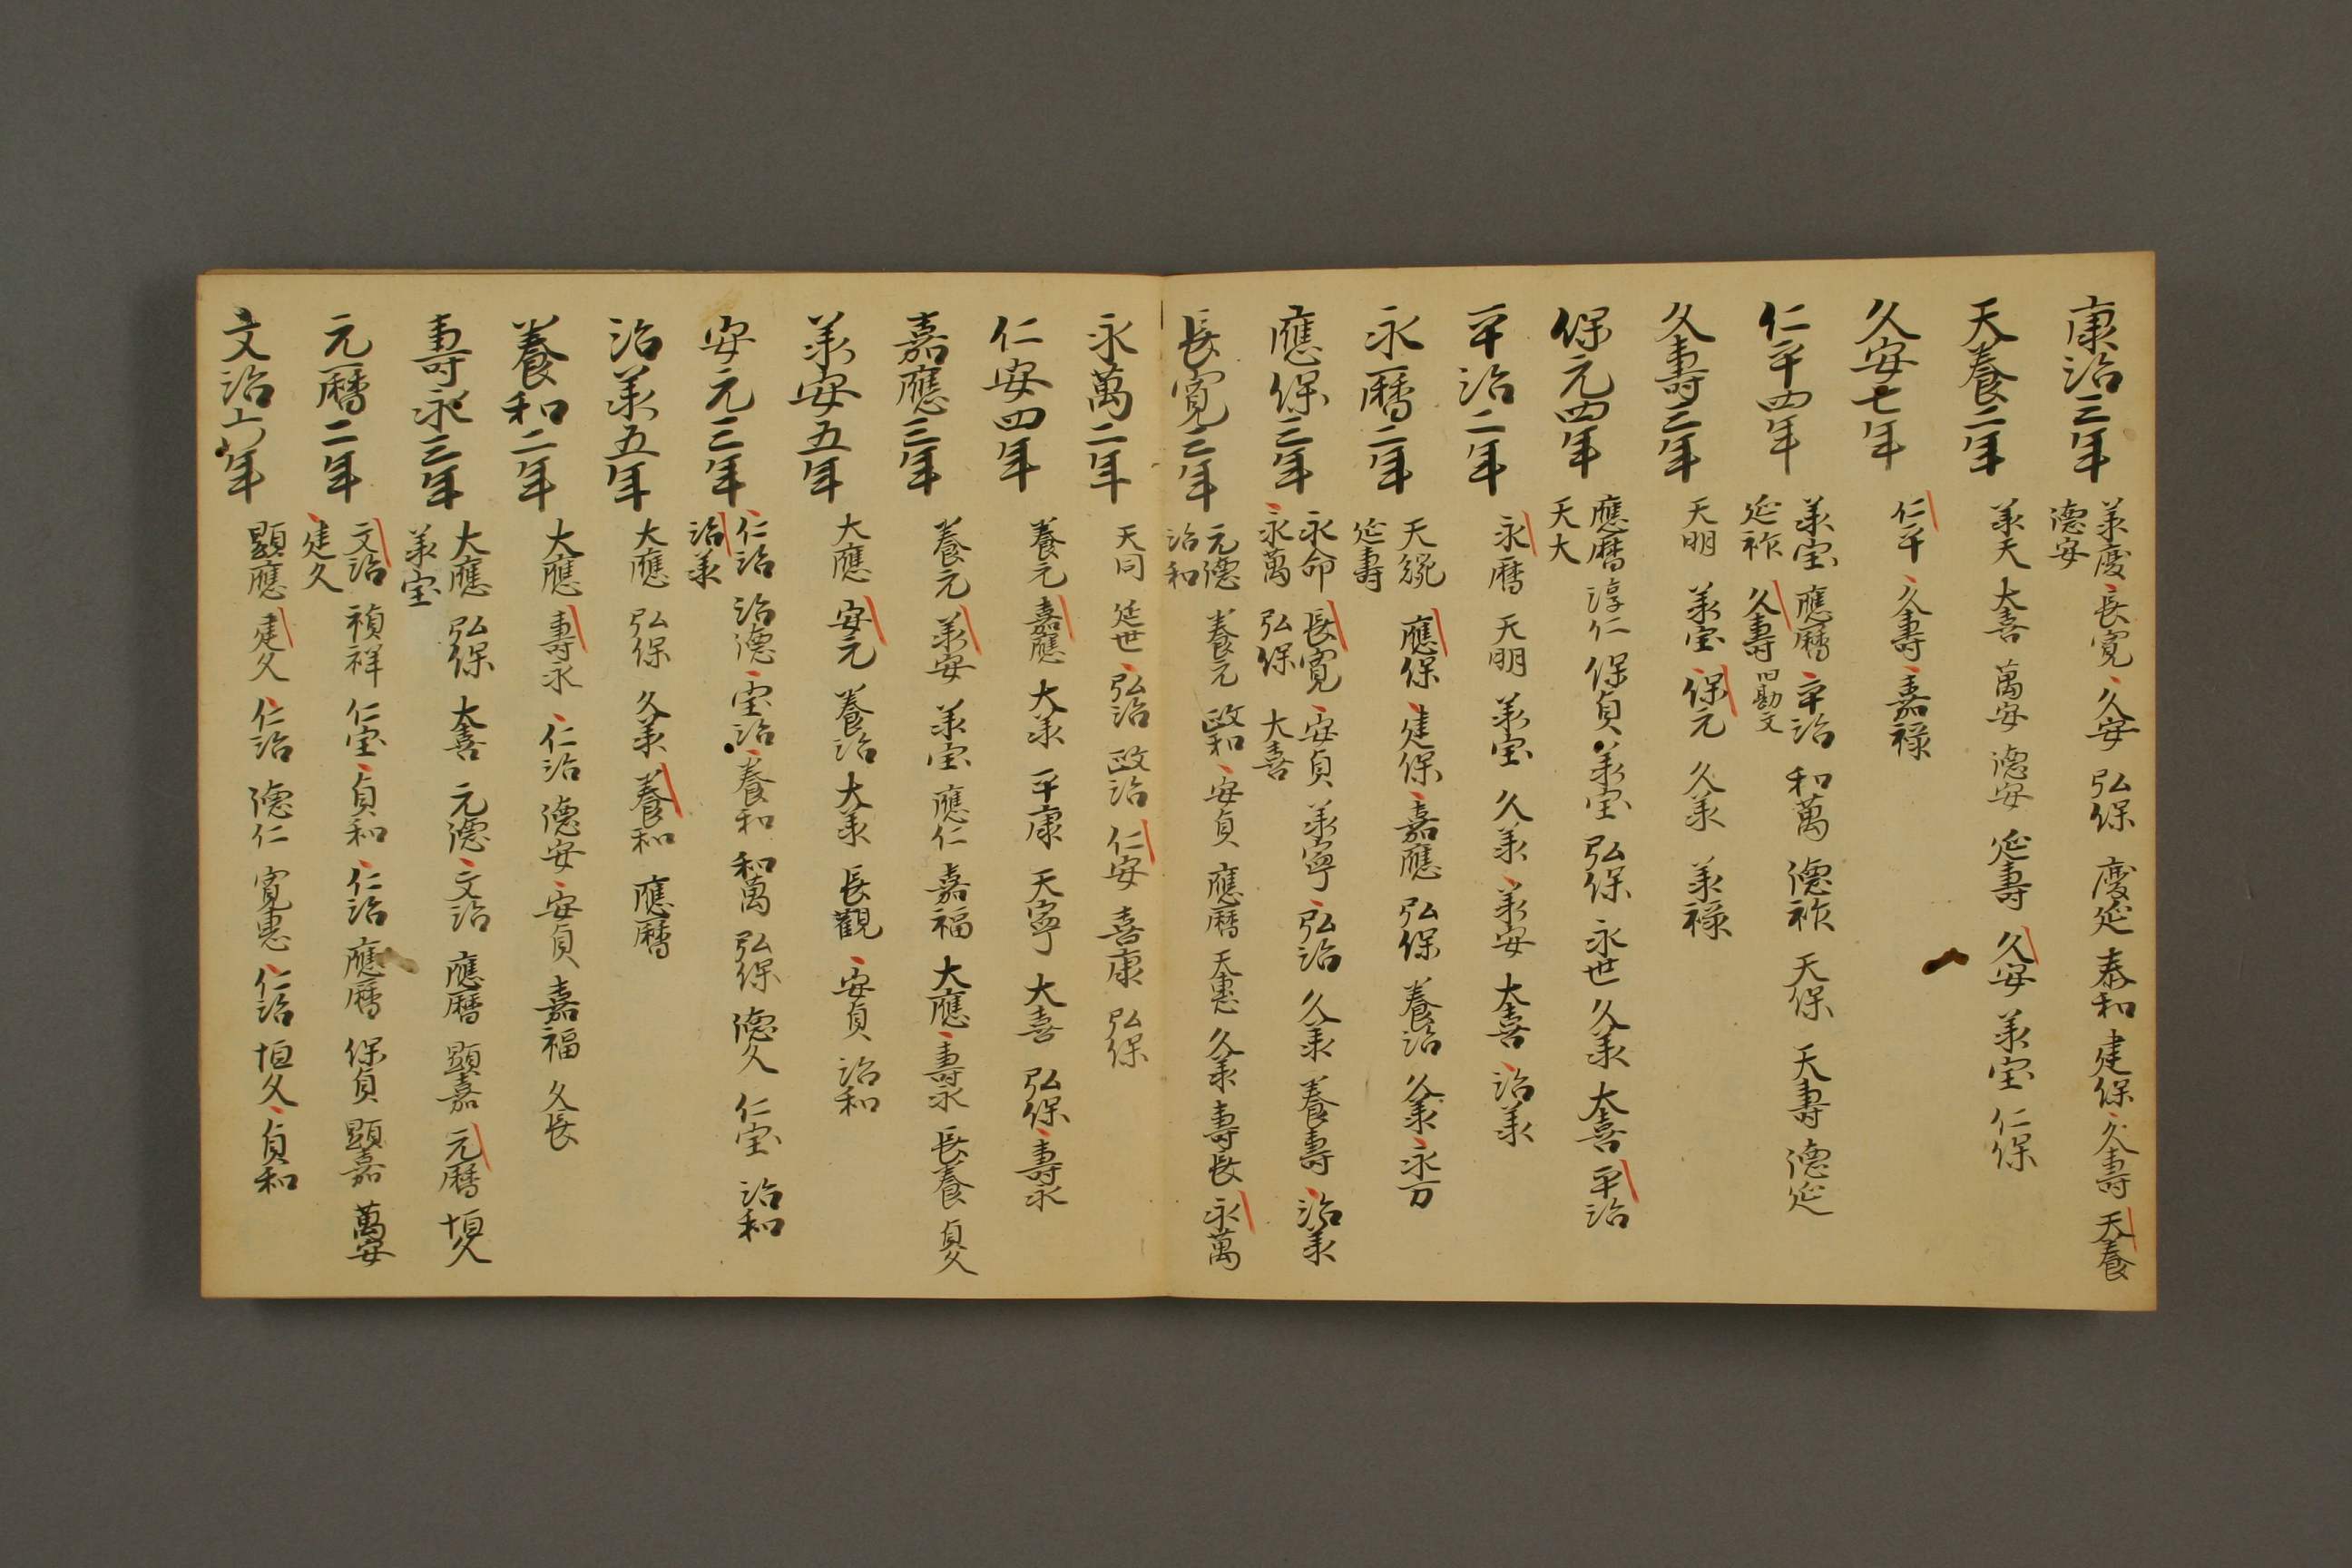 康治三年
承慶 長寛 久安 弘保 慶延 泰和 建保 久壽 天養
德安
天養二年
承天 大喜 萬安 德安 延壽 久安 承宝 仁保
久安七年
仁平 久壽 嘉禄
仁平四年
承宝 應曆 平治 和萬 德祚 天保 天壽 德延
延祚 久壽 旧勘文
久壽三年
天明 承宝 保元 久承 承禄
保元四年
應曆 淳仁 保貞 承宝 弘保 永世 久承 大喜 平治
天大
平治二年
永曆 天明 承宝 久承 承安 大喜 治承
永曆二年
天統 應保 建保 嘉應 弘保 養治 久承 永万
延壽
應保三年
永命 長寛 安貞 承寧 弘治 久承 養壽 治承
永萬 弘保 大喜
長寛三年
元德 養元 政和 安貞 應曆 天惠 久承 壽長 永萬
治和
永萬二年
天同 延世 弘治 政治 仁安 喜康 弘保
仁安四年
養元 嘉應 大承 平康 天寧 大喜 弘保 壽永
嘉應三年
養元 承安 承宝 應仁 嘉福 大應 壽永 長養 貞久
承安五年
大應 安元 養治 大承 長觀 安貞 治和
安元三年
仁治 治德 宝治 養和 和萬 弘保 德久 仁宝 治和
治承
治承五年
大應 弘保 久承 養和 應曆
養和二年
大應 壽永 仁治 德安 安貞 嘉福 久長
壽永三年
大應 弘保 大喜 元德 文治 應曆 顕嘉 元曆 恒久
承宝
元曆二年
文治 禎祥 仁宝 貞和 仁治 應曆 保貞 顕嘉 萬安
建久
文治六年
顕應 建久 仁治 德仁 寛惠 仁治 恒久 貞和